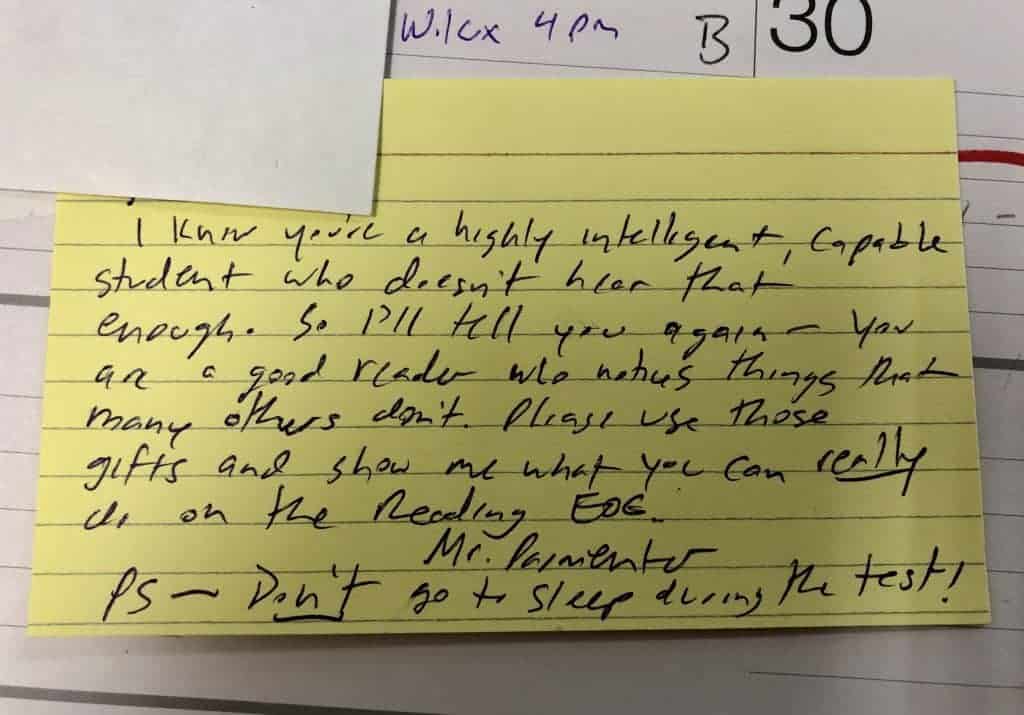 Wilcx 4 pm B 30
I know you're a highly intelligent, capable
student who doesn't hear that
enough. So I'll tell you again – You
are a good reader who notices things that
many others don't. Please use those
gifts and show me what you can really
do on the Reading EOG.
Mr. Parmenter
PS — Don't go to sleep during the test!